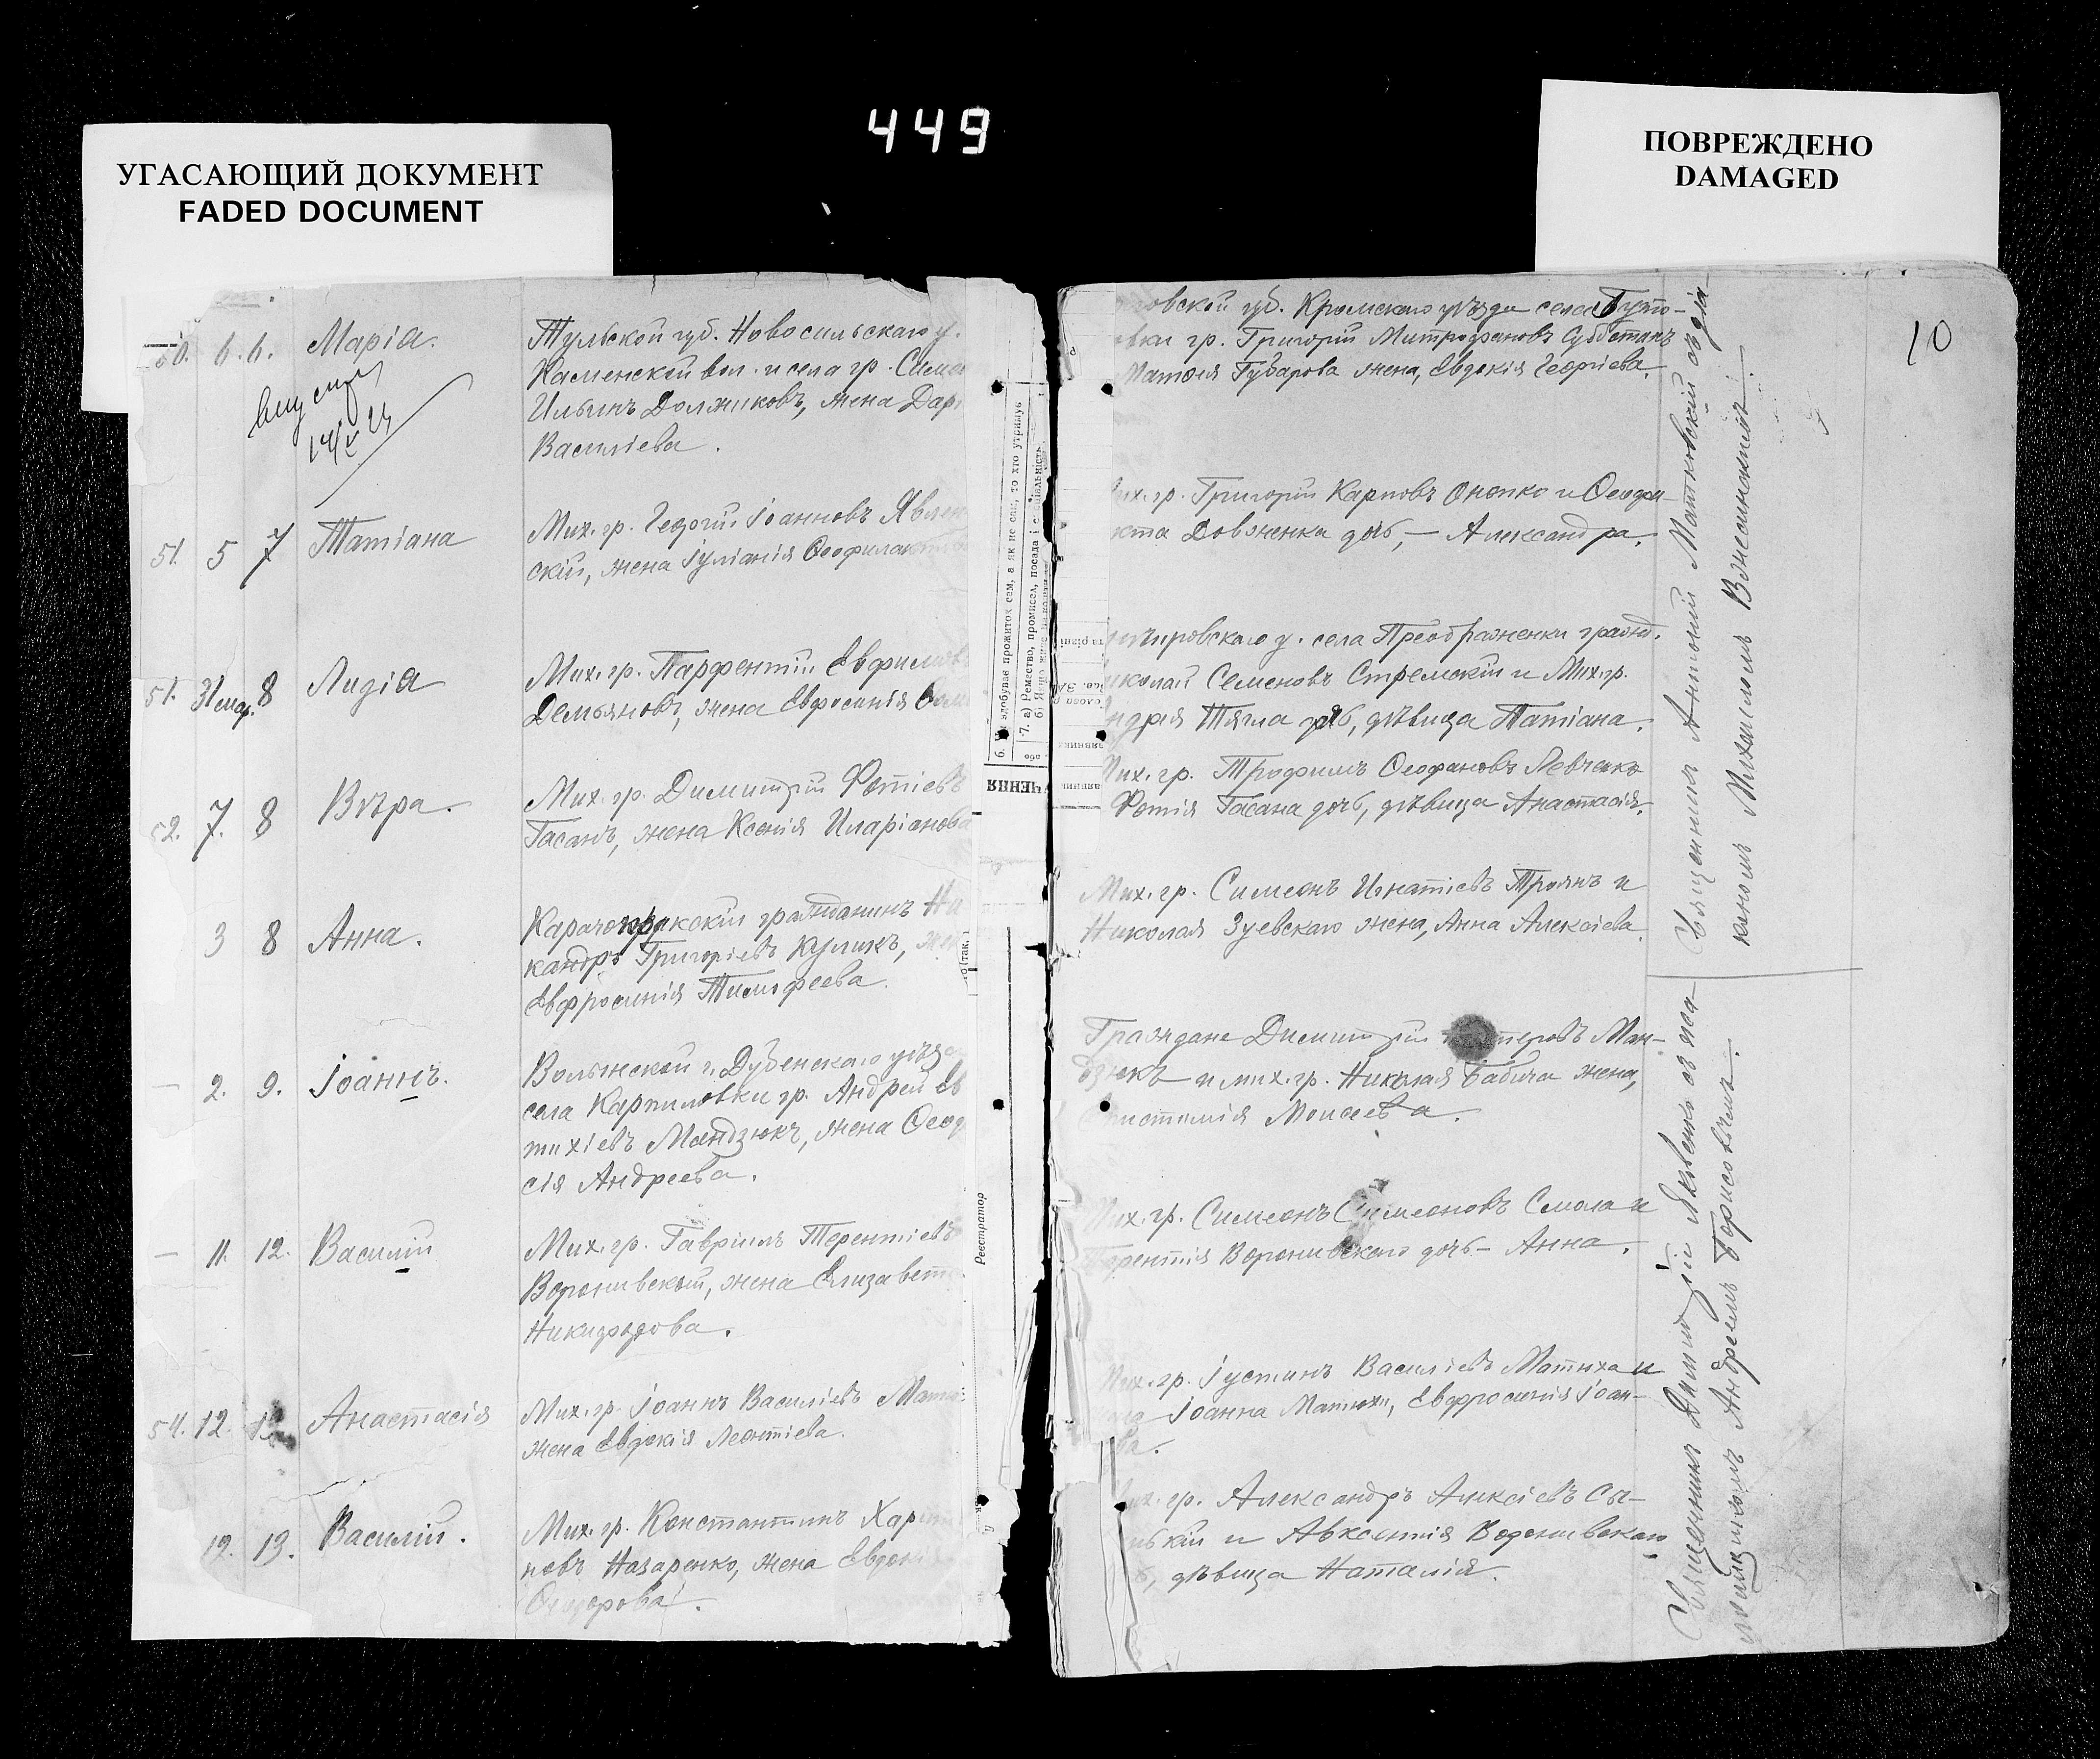 449
УГАСАЮЩИЙ ДОКУМЕНТ
FADED DOCUMENT
ПОВРЕЖДЕНО
DAMAGED
10
50. 6. 6. Марія.
Тульской губ. Новосильскаго у.
Каменской вол. и села гр.
Ильинъ Должиковъ, жена Дар
Василіева.
51. 5 7 Татіана
Мих. гр. Георгій Іоанновъ Явлен
скій, жена Іуліанія Ѳеофилакто
51. 31 8 Лидіа
Мих. гр. Парфентій Евфимов
Демьяновъ, жена Евфросинія
52. 7. 8 Вѣра.
Мих. гр. Димитрій Фотіевъ
Гасанъ, жена Ксенія Иларіонова
3 8 Анна.
гражданинъ Ни
кандръ Григоріевъ Куликъ, жен
Евфросинія Тимофеева.
— 2. 9. Іоаннъ.
Волынской г. Дубенскаго уѣзда
села Карпиловки гр. Андрей Ев
тихіевъ Мандзюкъ, жена Ѳеод
сія Андреева.
— 11. 12. Василій
Мих. гр. Гавріилъ Терентіевъ
Воронивскій, жена Елизавета
Никифорова.
54. 12. Анастасія
Мих. гр. Іоаннъ Василіевъ Матю
жена Евдокія Леонтіева.
12. 13. Василій.
Мих. гр. Константинъ Харит
новъ Назаренко, жена Евдокія
Ѳеодорова.
6. здобуває прожиток сам, а як не сам, то хто утримує
7. а) Ремество, промисел, посада і спеціальність.
ЧЕННЯ
Реєстратор
овской губ. Кромскаго уѣзда села Буто-
вки гр. Григорій Митрофановъ Субботинъ
Матѳія Губарова жена, Евдокія Георгіева.
Мих. гр. Григорій Карповъ Онопко и Ѳеофи-
кта Довженка дочь, — Александра.
мировскаго у. села Преображенки гражд.
иколай Семеновъ Стремскій и Мих. гр.
ндрея Тягла дочь, дѣвица Татіана.
Мих. гр. Трофимъ Ѳеофановъ Левченко
Фотія Гасана дочь, дѣвица Анастасія.
Мих. гр. Симеонъ Игнатіевъ Троянъ и
Николая Зуевскаго жена, Анна Алексіева.
Граждане Димитрій Ман-
дзюкъ и мих. гр. Николая Бабича жена,
Моисеева.
Мих. гр. Симеонъ Симеоновъ Смола и
Терентія Воронивскаго дочь — Анна.
Мих. гр. Іустинъ Василіевъ Матюха и
Іоанна Матюхи, Евфросинія Іоан-
ва.
Мих. гр. Александръ Алексіевъ Сы-
нькій и Авксентія Воронивскаго
дѣвица Наталія.
Священникъ Антоній Матковскій съ діа-
кономъ Михаиломъ
Священникъ Димитрій Яковенко съ пса-
ломщикомъ Андреемъ Борисовичемъ.